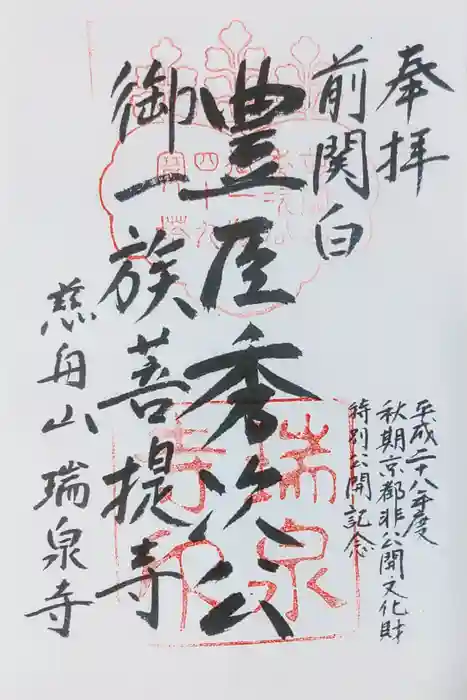 奉拝
前関白
豊臣秀次公
御一族菩提寺
慈舟山 瑞泉寺
平成二十八年度
秋期京都非公開文化財
特別公開記念
瑞泉
寺印